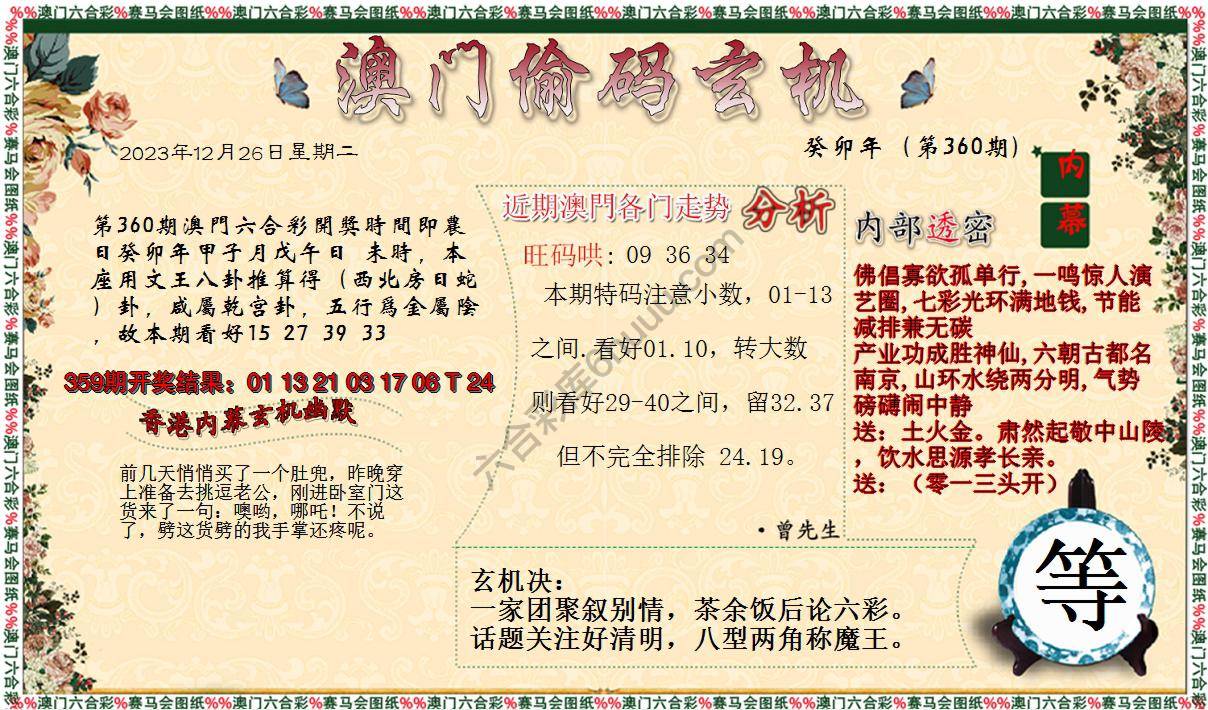 %%澳门六合彩%赛马会图纸%%澳门六合彩%赛马会图纸%%澳门六合彩%赛马会图纸%%澳门六合彩%赛马会图纸%%澳门六合彩%赛马会图纸%%澳门六合彩%赛马会图纸%%
澳门偷码玄机
2023年12月26日星期二
癸卯年（第360期）
内幕
第360期澳門六合彩開獎時間即農
日癸卯年甲子月戊午日 未時，本
座用文王八卦推算得（西北房日蛇
）卦，咸屬乾宫卦，五行爲金屬陰
，故本期看好15 27 39 33
359期开奖结果：01 13 21 03 17 06 T 24
香港内幕玄机幽默
前几天悄悄买了一个肚兜，昨晚穿
上准备去挑逗老公，刚进卧室门这
货来了一句：噢哟，哪吒！不说
了，劈这货劈的我手掌还疼呢。
近期澳門各门走势 分析
旺码哄: 09 36 34
本期特码注意小数，01-13
之间.看好01.10，转大数
则看好29-40之间，留32.37
但不完全排除 24.19。
·曾先生
内部透密
佛倡寡欲孤单行,一鸣惊人演
艺圈,七彩光环满地钱,节能
减排兼无碳
产业功成胜神仙,六朝古都名
南京,山环水绕两分明,气势
磅礴闹中静
送：土火金。肃然起敬中山陵
，饮水思源孝长亲。
送：（零一三头开）
玄机决：
一家团聚叙别情，茶余饭后论六彩。
话题关注好清明，八型两角称魔王。
等
六合彩库6huuu.com